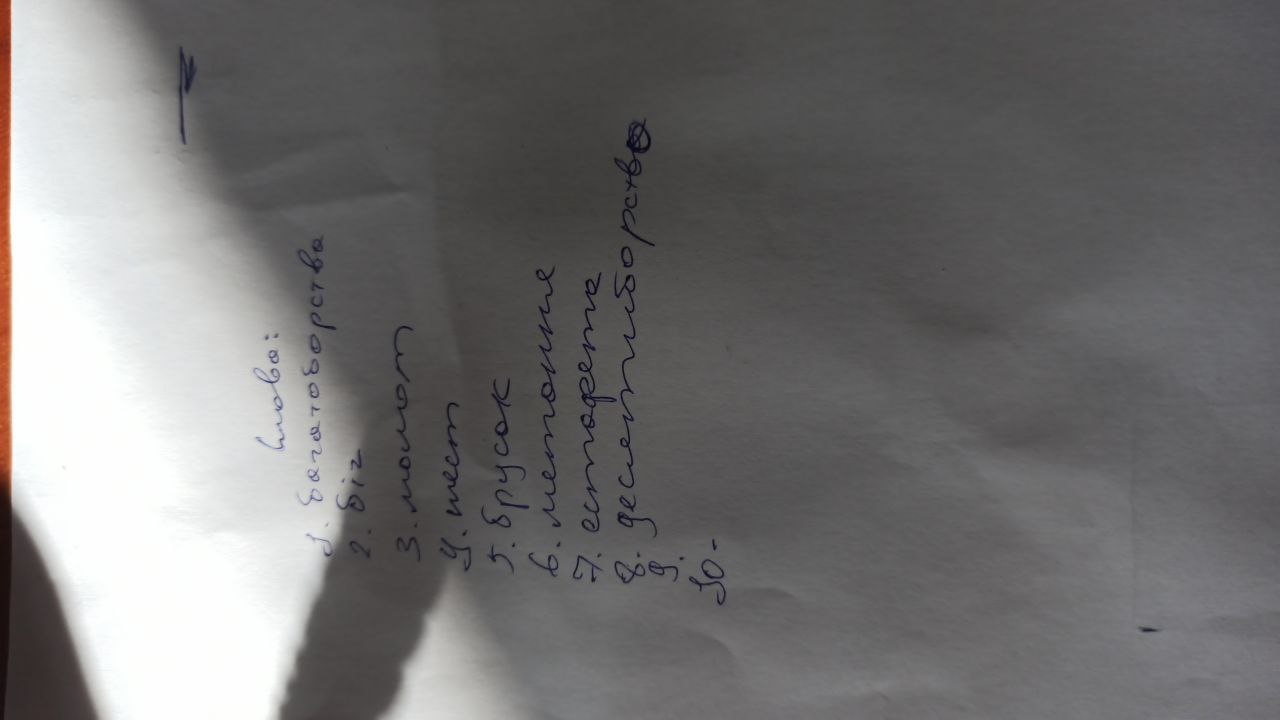 слова:
1. багатоборства
2. біг
3. молот
4. шест
5. брусок
6. метание
7. естафета
8. десятиборство
9.
10.